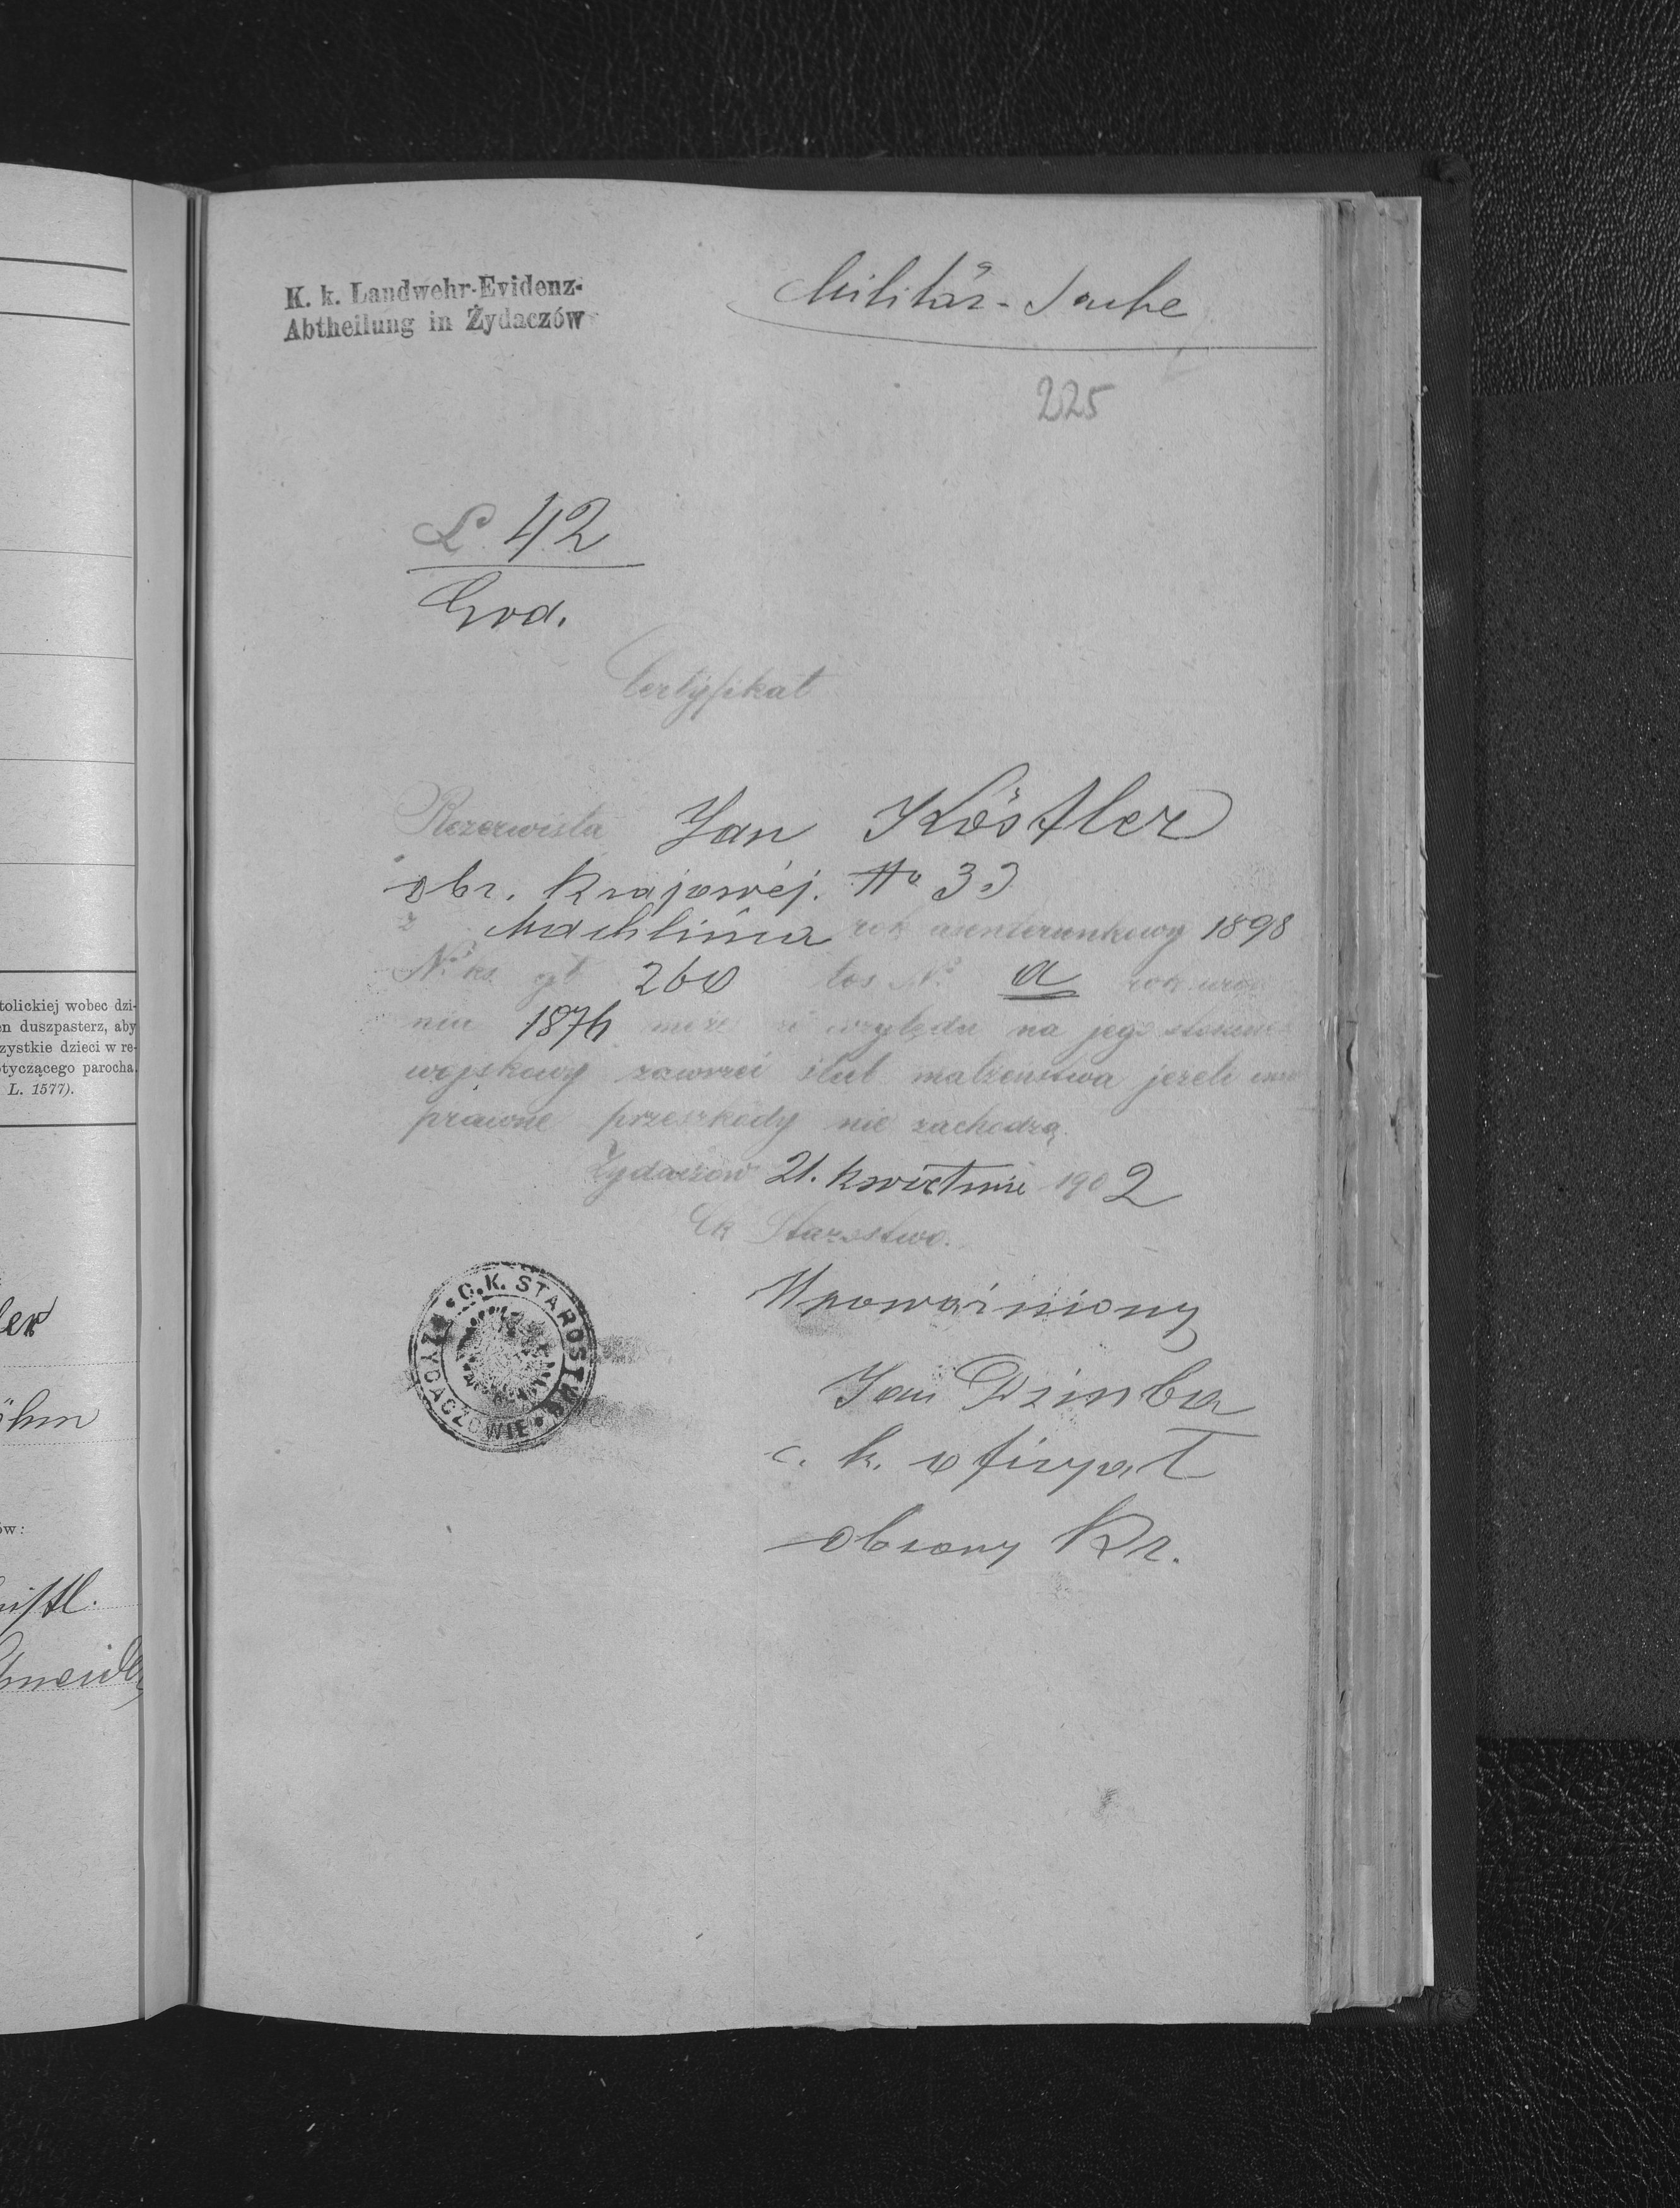 K. k. Landwehr-Evidenz-
Abtheilung in Żydaczów
Militär-Sache
225
L. 42
Certyfikat
Rezerwista Jan Köstler
obr. Krajowéj. No 33
z Machlinia rok asenterunkowy 1898
No ks. gł. 260 los No a rok uro
nia 1876 może ze względu na jego stosun
wojskowy zawrzeć ślub małżeństwa jeżeli
prawne przeszkody nie zachodzą.
Żydaczów 21. kwietnia 1902
Ck Starostwo.
C. K. STAROSTWO
W ŻYDACZOWIE
Upoważniony
Jan
c. k.
obrony Kr.
tolickiej wobec dzi-
en duszpasterz, aby
zystkie dzieci w re-
otyczącego parocha.
L. 1577).
ler
öhm
ów: